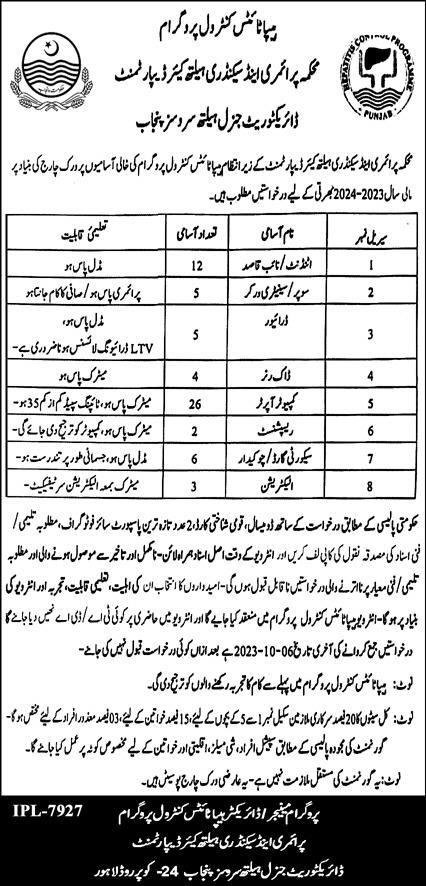 ہیپاٹائٹس کنٹرول پروگرام
محکمہ پرائمری اینڈ سیکنڈری ہیلتھ کیئر ڈیپارٹمنٹ
ڈائریکٹوریٹ جنرل ہیلتھ سروسز پنجاب
HEPATITIS CONTROL PROGRAMME
PUNJAB
محکمہ پرائمری اینڈ سیکنڈری ہیلتھ کیئر ڈیپارٹمنٹ کے زیر انتظام ہیپاٹائٹس کنٹرول پروگرام کی خالی آسامیوں پر ورک چارج کی بنیاد پر
مالی سال 2023-2024 بھرتی کے لیے درخواستیں مطلوب ہیں۔
سیریل نمبر نام آسامی تعداد آسامی تعلیمی قابلیت
1 اٹنڈنٹ/نائب قاصد 12 مڈل پاس ہو
2 سوپر/سینٹری ورکر 5 پرائمری پاس ہو/صفائی کا کام جانتا ہو
3 ڈرائیور 5 مڈل پاس ہو،
LTV ڈرائیونگ لائسنس ہونا ضروری ہے۔
4 ڈاک رنر 4 میٹرک پاس ہو
5 کمپیوٹر آپریٹر 26 میٹرک پاس ہو، ٹائپنگ سپیڈ کم از کم 35 ہو۔
6 ریسپشنسٹ 2 میٹرک پاس ہو، کمپیوٹر کو ترجیح دی جائے گی۔
7 سیکورٹی گارڈ/چوکیدار 6 مڈل پاس ہو، جسمانی طور پر تندرست ہو۔
8 الیکٹریشن 3 میٹرک بمعہ الیکٹریشن سرٹیفکیٹ۔
حکومتی پالیسی کے مطابق درخواست کے ساتھ ڈومیسائل، قومی شناختی کارڈ، 2 عدد تازہ ترین پاسپورٹ سائز فوٹو گراف، مطلوبہ تعلیمی/
فنی اسناد کی مصدقہ نقول کی کاپی لف کریں اور انٹرویو کے وقت اصل اسناد ہمراہ لائن۔ نامکمل اور تاخیر سے موصول ہونے والی اور مطلوبہ
تعلیمی/ فنی معیار پر نا اترنے والی درخواستیں ناقابل قبول ہوں گی۔ امیدواروں کا انتخاب ان کی اہلیت، تعلیمی قابلیت، تجربہ اور انٹرویو کی
بنیاد پر ہوگا۔ انٹرویو ہیپاٹائٹس کنٹرول پروگرام میں منعقد کیا جائے گا اور انٹرویو میں حاضری پر کوئی ٹی اے/ڈی اے نہیں دیا جائے گا
درخواستیں جمع کروانے کی آخری تاریخ 06-10-2023 ہے بعد ازاں کوئی درخواست قبول نہیں کی جائے۔
نوٹ: ہیپاٹائٹس کنٹرول پروگرام میں پہلے سے کام کا تجربہ رکھنے والوں کو ترجیح دی گی۔
نوٹ: کل سیٹوں کا 20 فیصد سرکاری ملازمین سکیل نمبر 1 سے 5 کے بچوں کے لیے، 15 فیصد خواتین کے لیے، 03 فیصد معذور افراد کے لیے مختص ہوگا۔
گورنمنٹ کی مجودہ پالیسی کے مطابق سپیشل افراد، شی میلز، اقلیتی اور خواتین کے لیے مخصوص کوٹہ پر عمل کیا جائے گا۔
نوٹ: یہ گورنمنٹ کی مستقل ملازمت نہیں ہے۔ یہ عارضی ورک چارج پوسٹیں ہے۔
IPL-7927
پروگرام مینیجر/ڈائریکٹر ہیپاٹائٹس کنٹرول پروگرام
پرائمری اینڈ سیکنڈری ہیلتھ کیئر ڈیپارٹمنٹ
ڈائریکٹوریٹ جنرل ہیلتھ سروسز پنجاب 24-کوپر روڈ لاہور